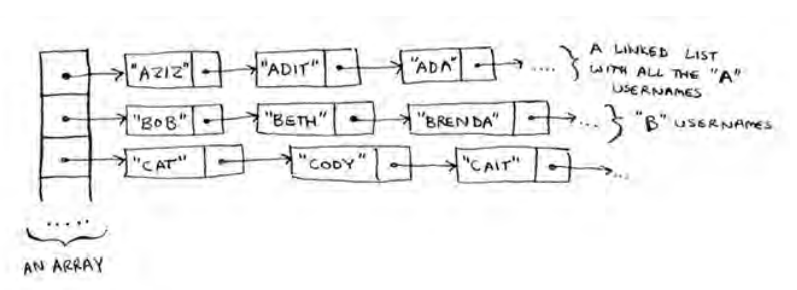 "AZIZ" "ADIT" "ADA" .... A LINKED LIST
WITH ALL THE "A"
USERNAMES
"BOB" "BETH" "BRENDA" ... "B" USERNAMES
"CAT" "CODY" "CAIT" ...
.....
AN ARRAY